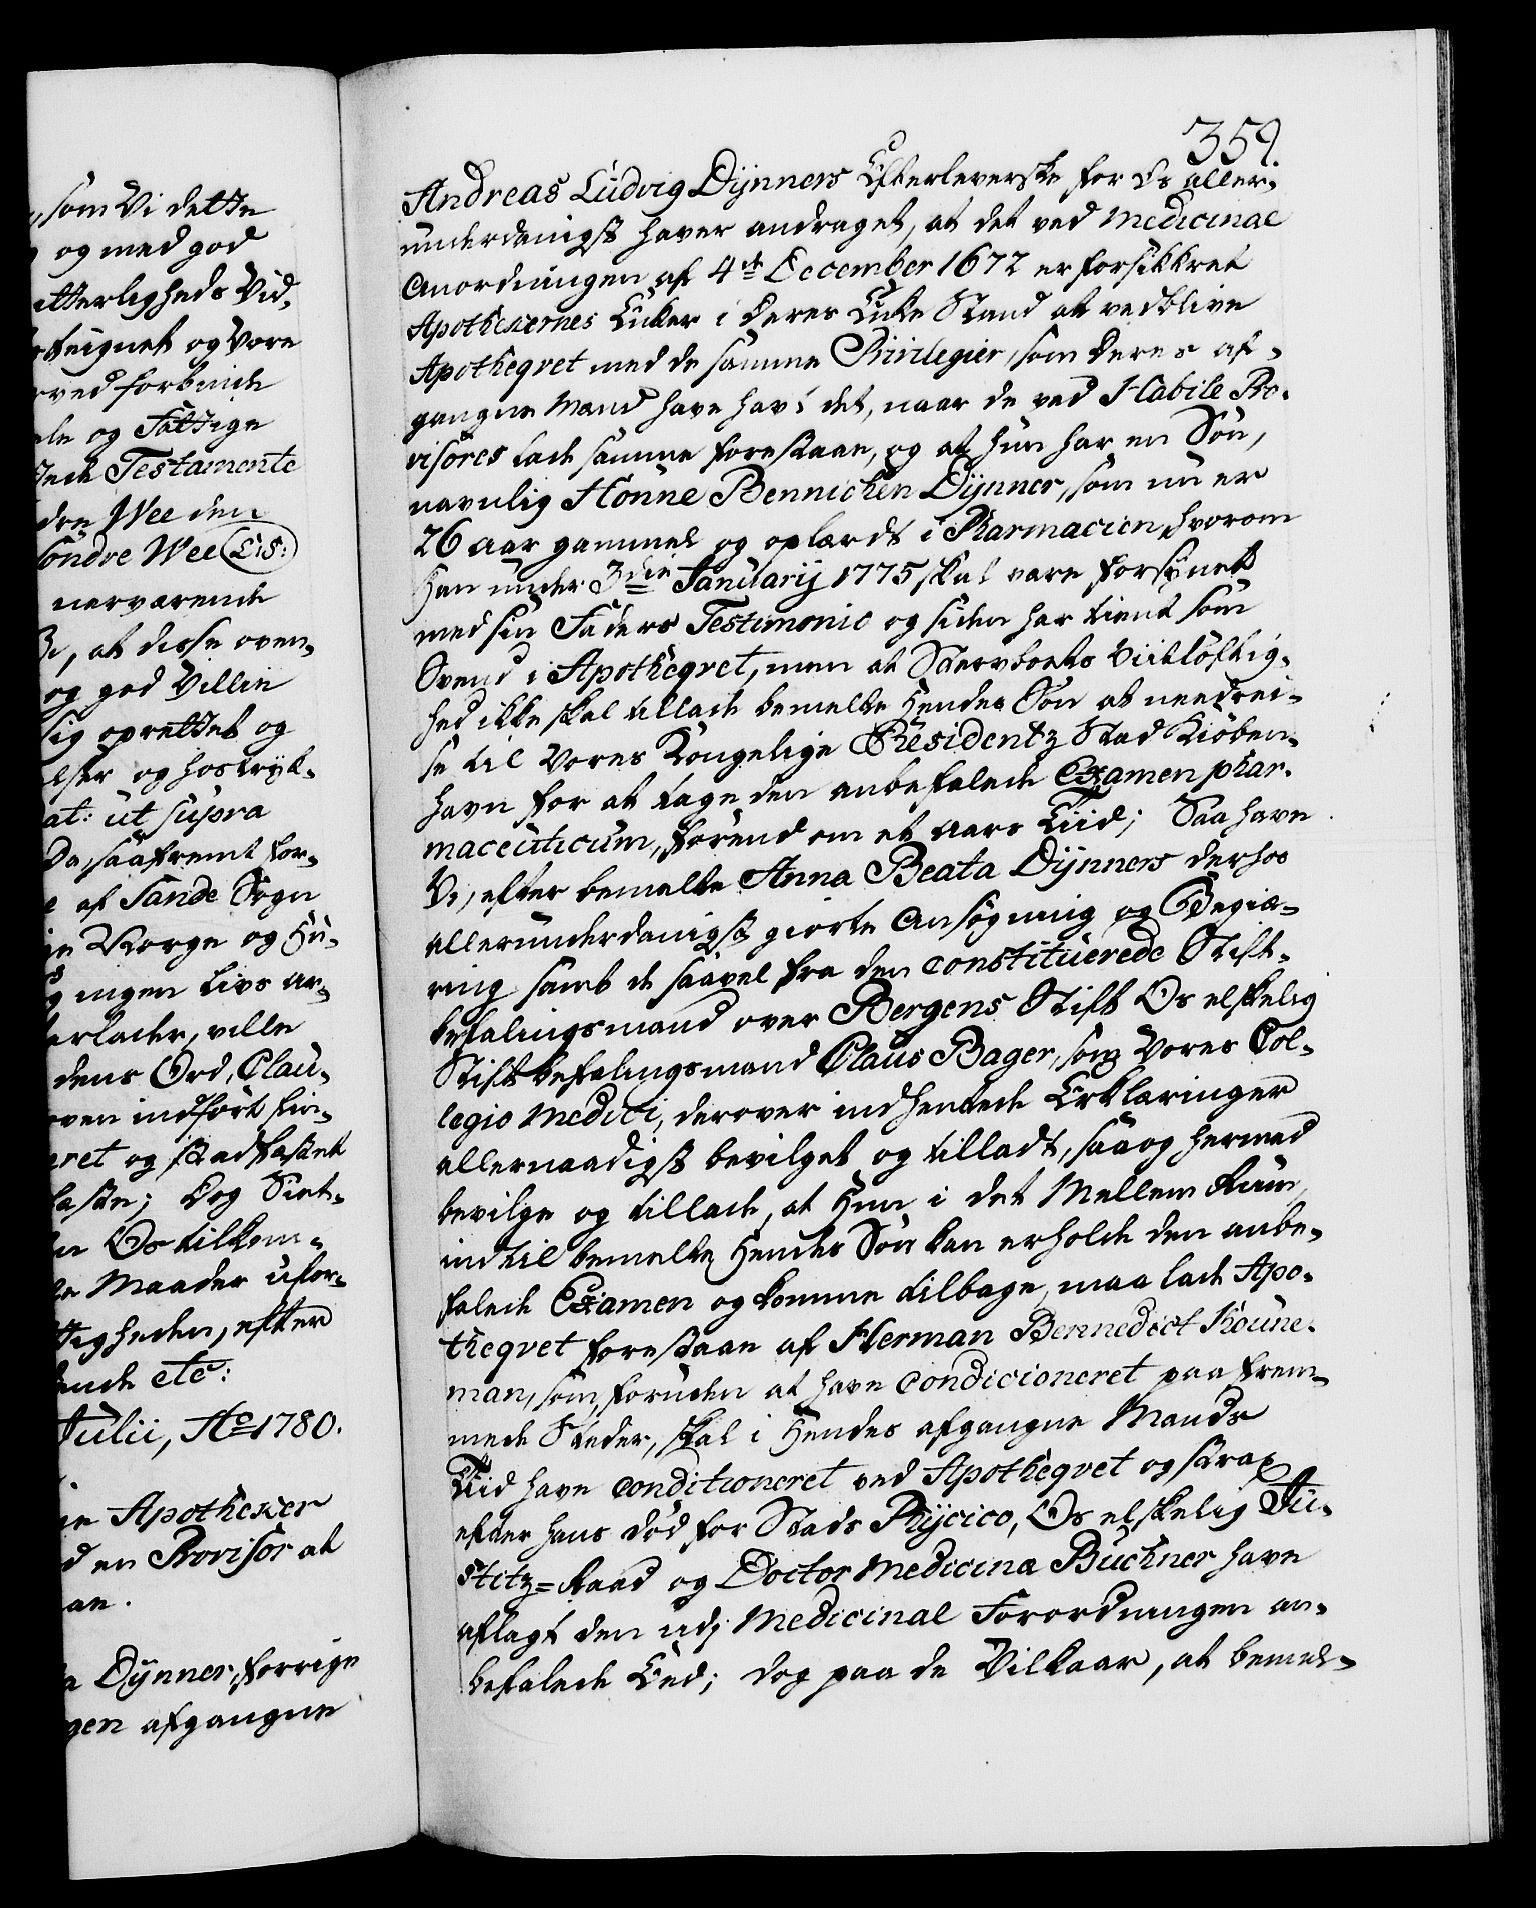 , som Vi dette
og med god
itterligheds Vid-
rteignet og Vore
rved forbinde
ele og Fattige
Testamente
dre Wee den
Søndre Wee (L:S:)
nerværende
, at disse oven-
og god Villie
sig oprettet og
elser og hostryk-
at: ut supra
Da, saafremt for-
e af Sande Sogn
Norge og Hu-
g ingen Livs Ar-
terlader, ville
dens Ord, Clau-
oven indført fin-
eret og stadfæstet
faste; Dog Sint-
Os tilkom-
Maader ufor-
tigheden, efter
ende etc:
Julii, Ao 1780.
Apotheker
d en Provisor at
an.
a Dynner, forrige
gen afgangne
359.
Andreas Ludvig Dynners Efterleverske for Os aller-
underdanigst haver andraget, at det ved Medicinal
Anordningen af 4de December 1672 er forsikkret
Apothekernes Enker i deres Enke Stand at vedblive
Apotheqvet med de samme Privilegier, som deres af-
gangne Mænd have havt det, naar de ved Habile Pro-
visores lade samme forestaae, og at hun har en Søn,
navnlig Hønne Bennichen Dynner, som nu er
26 Aar gammel og oplærdt i Pharmacien, hvorom
Han under 3die Januarij 1775 skal være forsynet
med sin Faders Testimonio og siden har tient som
Svend i Apotheqvet, men at Stervboets Viitløftig-
hed ikke skal tillade bemelte Hendes Søn at needrei-
se til Vores Kongelige Residentz Stad Kiøben-
havn for at tage den anbefalede Examen phar-
maceuticum, førend om et Aars Tiid; Saa have
Vi, efter bemelte Anna Beata Dynners derhos
allerunderdanigst giorte Ansøgning og Begiæ-
ring samt de saavel fra den constituerede Stift-
befalingsmand over Bergens Stift Os elskelig
Stiftbefalingsmand Claus Bager, som Vores Col-
legio Medici, derover indhentede Erklæringer
allernaadigst bevilget og tilladt, saa og hermed
bevilge og tillade, at Hun i det Mellem Rum,
indtil bemelte Hendes Søn kan erholde den anbe-
falede Examen og komme tilbage, maa lade Apo-
theqvet forestaae af Herman Bennedict Koune-
man, som, foruden at have Condicioneret paa frem-
mede Steder, skal i Hendes afgangne Mands
Tiid have Conditioneret ved Apotheqvet og strax
efter hans Død for Stads Phycico, Os elskelig Ju-
stitz-Raad og Doctor Medicinæ Büchner have
aflagt den udj Medicinal Forordningen an-
befalede Eed; dog paa de Vilkaar, at bemel-